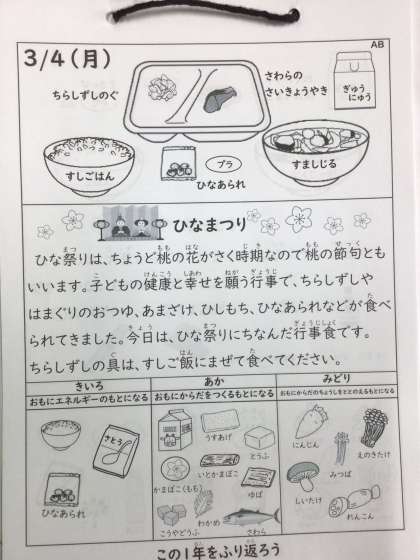 AB
3/4(月)
ちらしずしのぐ
さわらの
さいきょうやき
ぎゅう
にゅう
すしごはん
プラ
ひなあられ
すましじる
ひなまつり
ひな祭りは、ちょうど桃の花がさく時期なので桃の節句とも
いいます。子どもの健康と幸せを願う行事で、ちらしずしや
はまぐりのおつゆ、あまざけ、ひしもち、ひなあられなどが食べ
られてきました。今日は、ひな祭りにちなんだ行事食です。
ちらしずしの具は、すしご飯にまぜて食べてください。
きいろ
おもにエネルギーのもとになる
さとう
ひなあられ
あか
おもにからだをつくるもとになる
うすあげ
とうふ
いとかまぼこ
かまぼこ(もも)
ゆば
わかめ
こうやどうふ
さわら
みどり
おもにからだのちょうしをととのえるもとになる
にんじん
えのきたけ
みつば
しいたけ
れんこん
この1年をふり返ろう